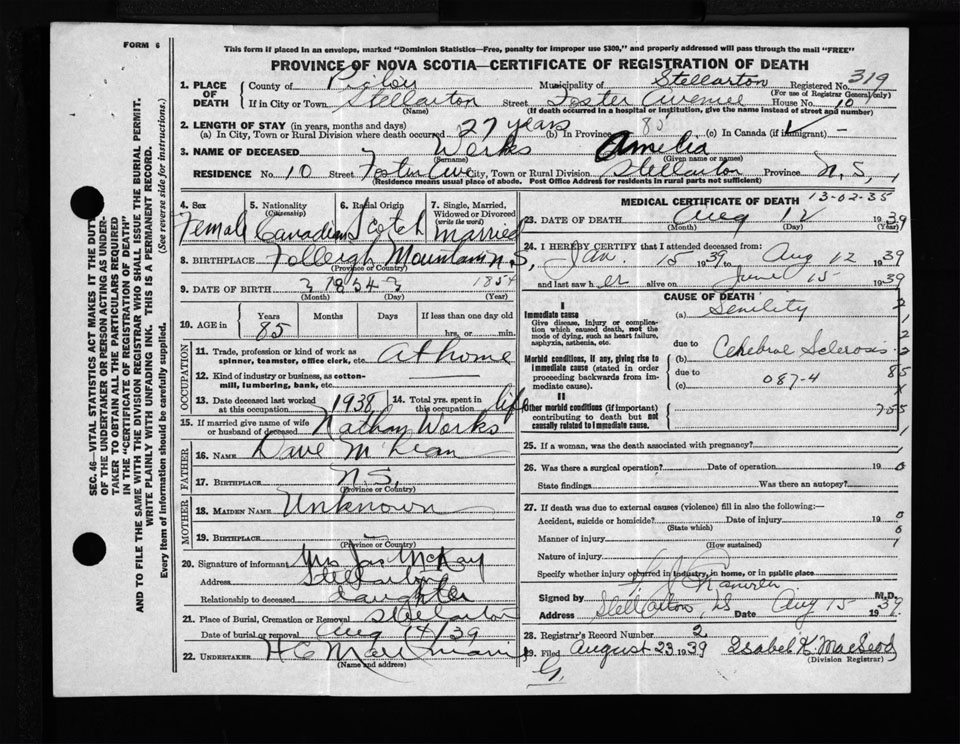 FORM 6
This form if placed in an envelope, marked "Dominion Statistics—Free, penalty for improper use $300," and properly addressed will pass through the mail "FREE"
PROVINCE OF NOVA SCOTIA—CERTIFICATE OF REGISTRATION OF DEATH
1. PLACE OF DEATH County of Pictou Municipality of Stellarton Registered No. 319
(For use of Registrar General only)
If in City or Town Stellarton Street Foster Avenue House No. 10
(Name) (If death occurred in a hospital or institution, give the name instead of street and number)
2. LENGTH OF STAY (in years, months and days)
(a) In City, Town or Rural Division where death occurred 27 years (b) In Province 85 (c) In Canada (if immigrant) -
3. NAME OF DECEASED Works Amelia
(Surname) (Given name or names)
RESIDENCE No. 10 Street Foster Ave City, Town or Rural Division Stellarton Province N.S,
(Residence means usual place of abode. Post Office Address for residents in rural parts not sufficient)
4. Sex Female
5. Nationality (Citizenship) Canadian
6. Racial Origin Scotch
7. Single, Married, Widowed or Divorced (write the word) married
8. BIRTHPLACE Folleigh Mountain N.S,
(Province or Country)
9. DATE OF BIRTH 3 1854 3 1854
(Month) (Day) (Year)
10. AGE in Years Months Days If less than one day old
85 hrs. or min.
OCCUPATION
11. Trade, profession or kind of work as spinner, teamster, office clerk, etc. At home
12. Kind of industry or business, as cotton-mill, lumbering, bank, etc.
13. Date deceased last worked at this occupation 1938 14. Total yrs. spent in this occupation life
15. If married give name of wife or husband of deceased Nathan Works
FATHER
16. NAME Dave McLean
17. BIRTHPLACE N.S.
(Province or Country)
MOTHER
18. MAIDEN NAME Unknown
19. BIRTHPLACE
(Province or Country)
20. Signature of informant Mrs Jas McKay
Address Stellarton
Relationship to deceased daughter
21. Place of Burial, Cremation or Removal Stellarton
Date of burial or removal Aug 14/39
22. UNDERTAKER
(Name and address)
MEDICAL CERTIFICATE OF DEATH 13-02-35
23. DATE OF DEATH Aug 12 1939
(Month) (Day) (Year)
24. I HEREBY CERTIFY that I attended deceased from:
Jan. 15 1939 to Aug 12 1939
and last saw her alive on June 15 1939
CAUSE OF DEATH
I
Immediate cause
Give disease, injury or complication which caused death, not the mode of dying, such as heart failure, asphyxia, asthenia, etc.
(a) Senility
due to
Morbid conditions, if any, giving rise to immediate cause (stated in order proceeding backwards from immediate cause).
(b) Cerebral Sclerosis
due to
(c) 087-4
II
Other morbid conditions (if important) contributing to death but not causally related to immediate cause.
25. If a woman, was the death associated with pregnancy?
26. Was there a surgical operation? Date of operation 19
State findings Was there an autopsy?
27. If death was due to external causes (violence) fill in also the following:—
Accident, suicide or homicide? Date of injury 19
(State which)
Manner of injury
(How sustained)
Nature of injury
Specify whether injury occurred in industry, in home, or in public place
Signed by M.D.
Address Stellarton, NS Date Aug 15 1939
28. Registrar's Record Number 2
29. Filed August 23 1939 Isabel K. MacLeod
(Division Registrar)
G.
SEC. 46—VITAL STATISTICS ACT MAKES IT THE DUTY OF THE UNDERTAKER OR PERSON ACTING AS UNDERTAKER TO OBTAIN ALL THE PARTICULARS REQUIRED IN THE "CERTIFICATE OF REGISTRATION OF DEATH" AND TO FILE THE SAME WITH THE DIVISION REGISTRAR WHO SHALL ISSUE THE BURIAL PERMIT.
WRITE PLAINLY WITH UNFADING INK. THIS IS A PERMANENT RECORD.
Every item of information should be carefully supplied. (See reverse side for instructions.)